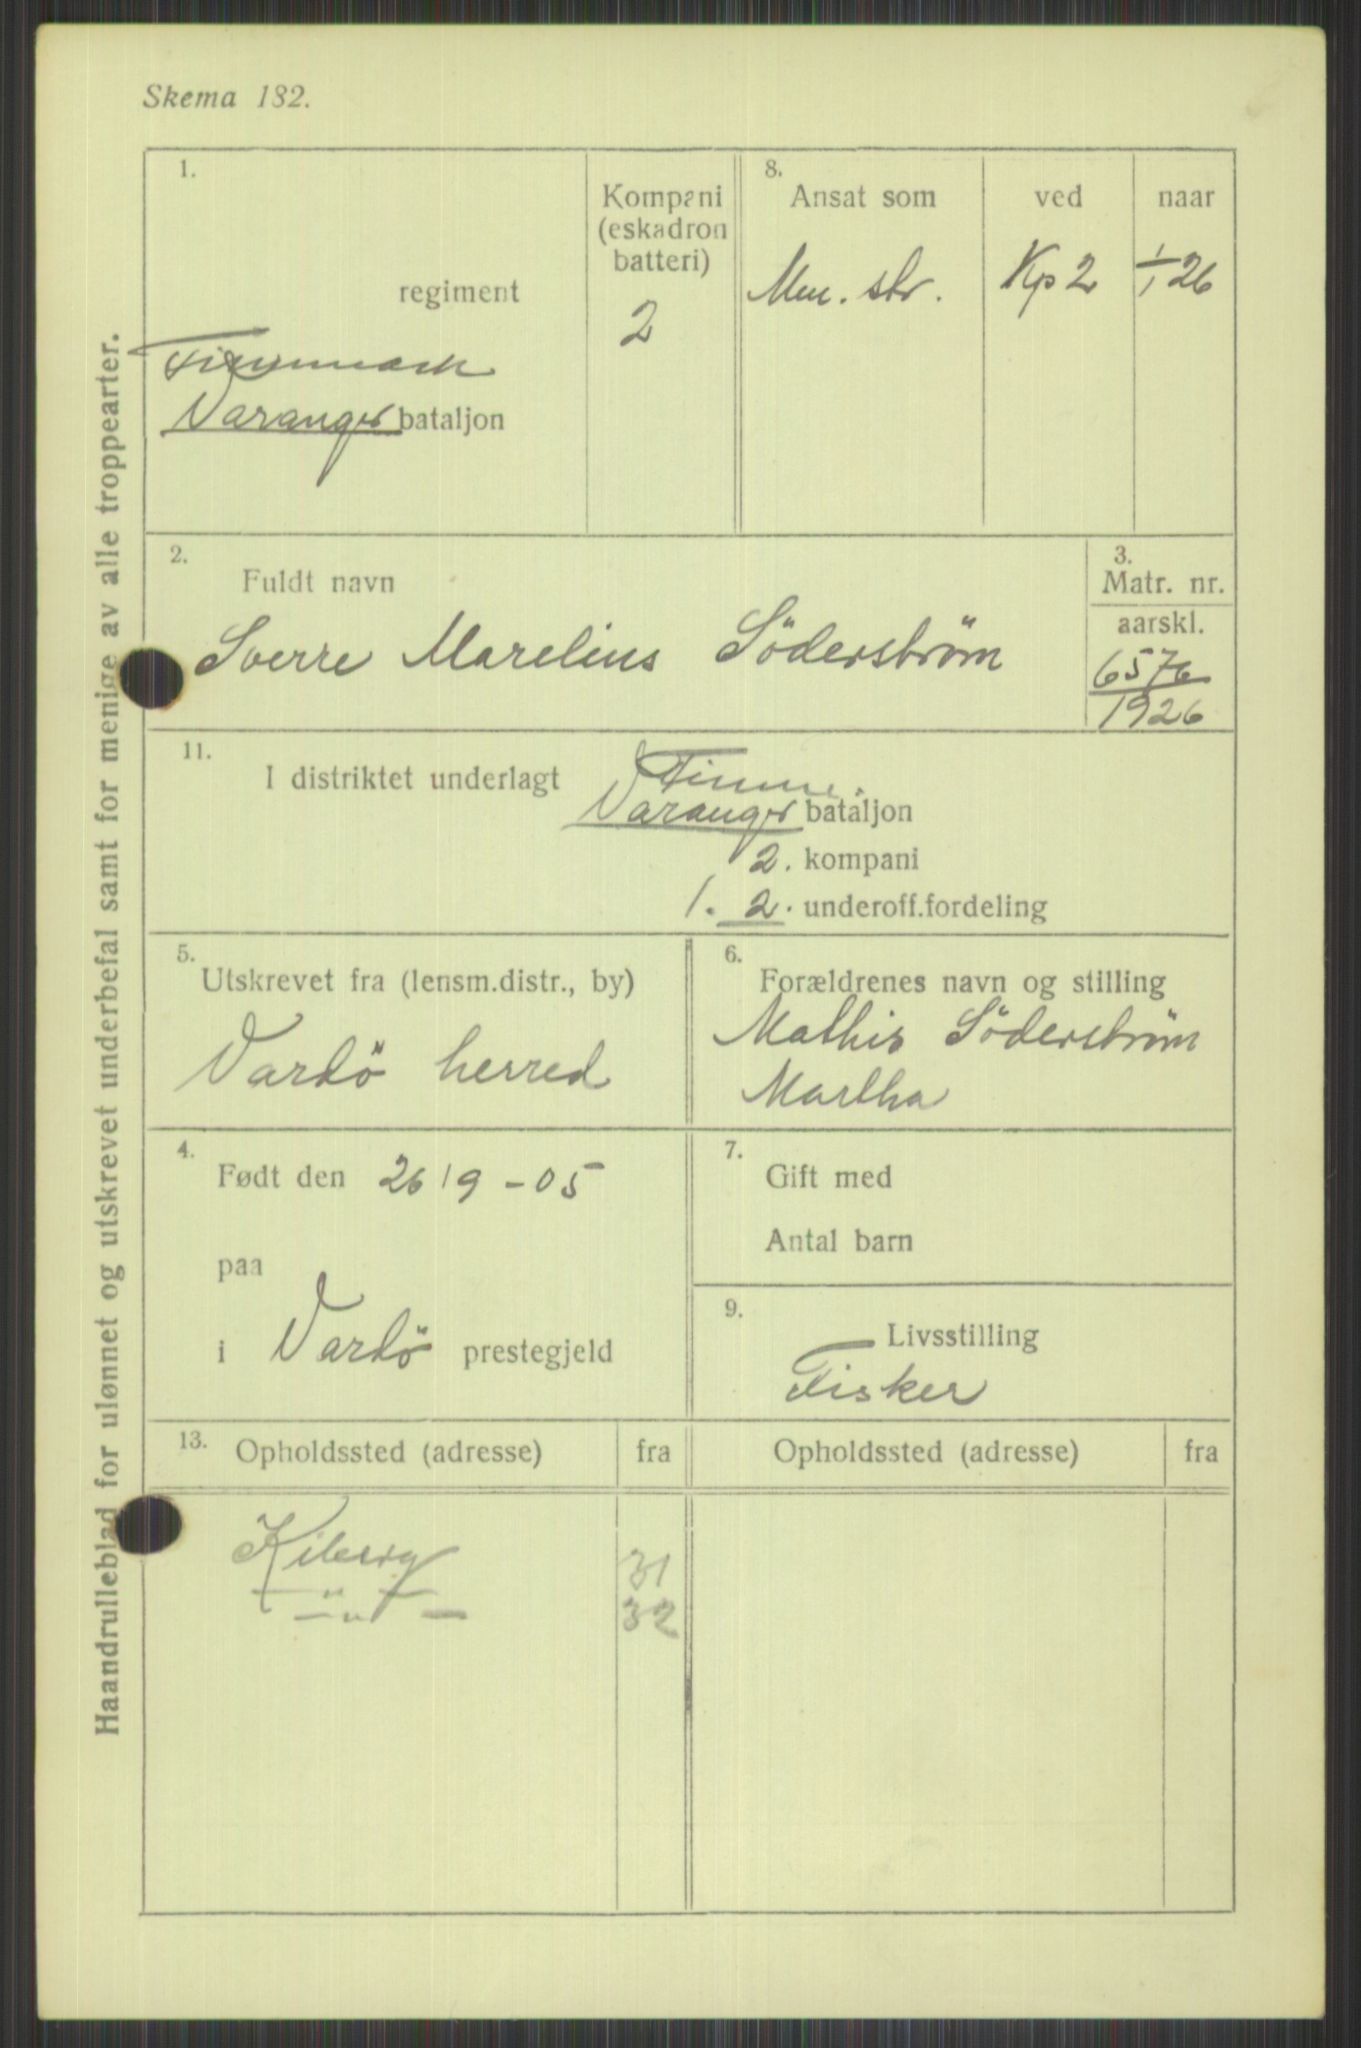 Skema 182.
Haandrulleblad for ulønnet og utskrevet underbefal samt for menige av alle troppearter.
1.
regiment
Finnmark
Varanger bataljon
Kompani
(eskadron
batteri)
2
8.
Ansat som
Men. str.
ved
Kp 2
naar
1/1 26
2.
Fuldt navn
Sverre Marelius Söderstrøm
3.
Matr. nr.
aarskl.
6576
1926
11.
I distriktet underlagt
Finnm.
Varanger bataljon
2. kompani
1. 2. underoff.fordeling
5.
Utskrevet fra (lensm.distr., by)
Vardö herred
6.
Forældrenes navn og stilling
Mathis Söderstrøm
Martha
4.
Født den 26/9-05
paa
i Vardö prestegjeld
7.
Gift med
Antal barn
9.
Livsstilling
Fisker
13.
Opholdssted (adresse) fra Opholdssted (adresse) fra
Kiberg 31
— " — 32